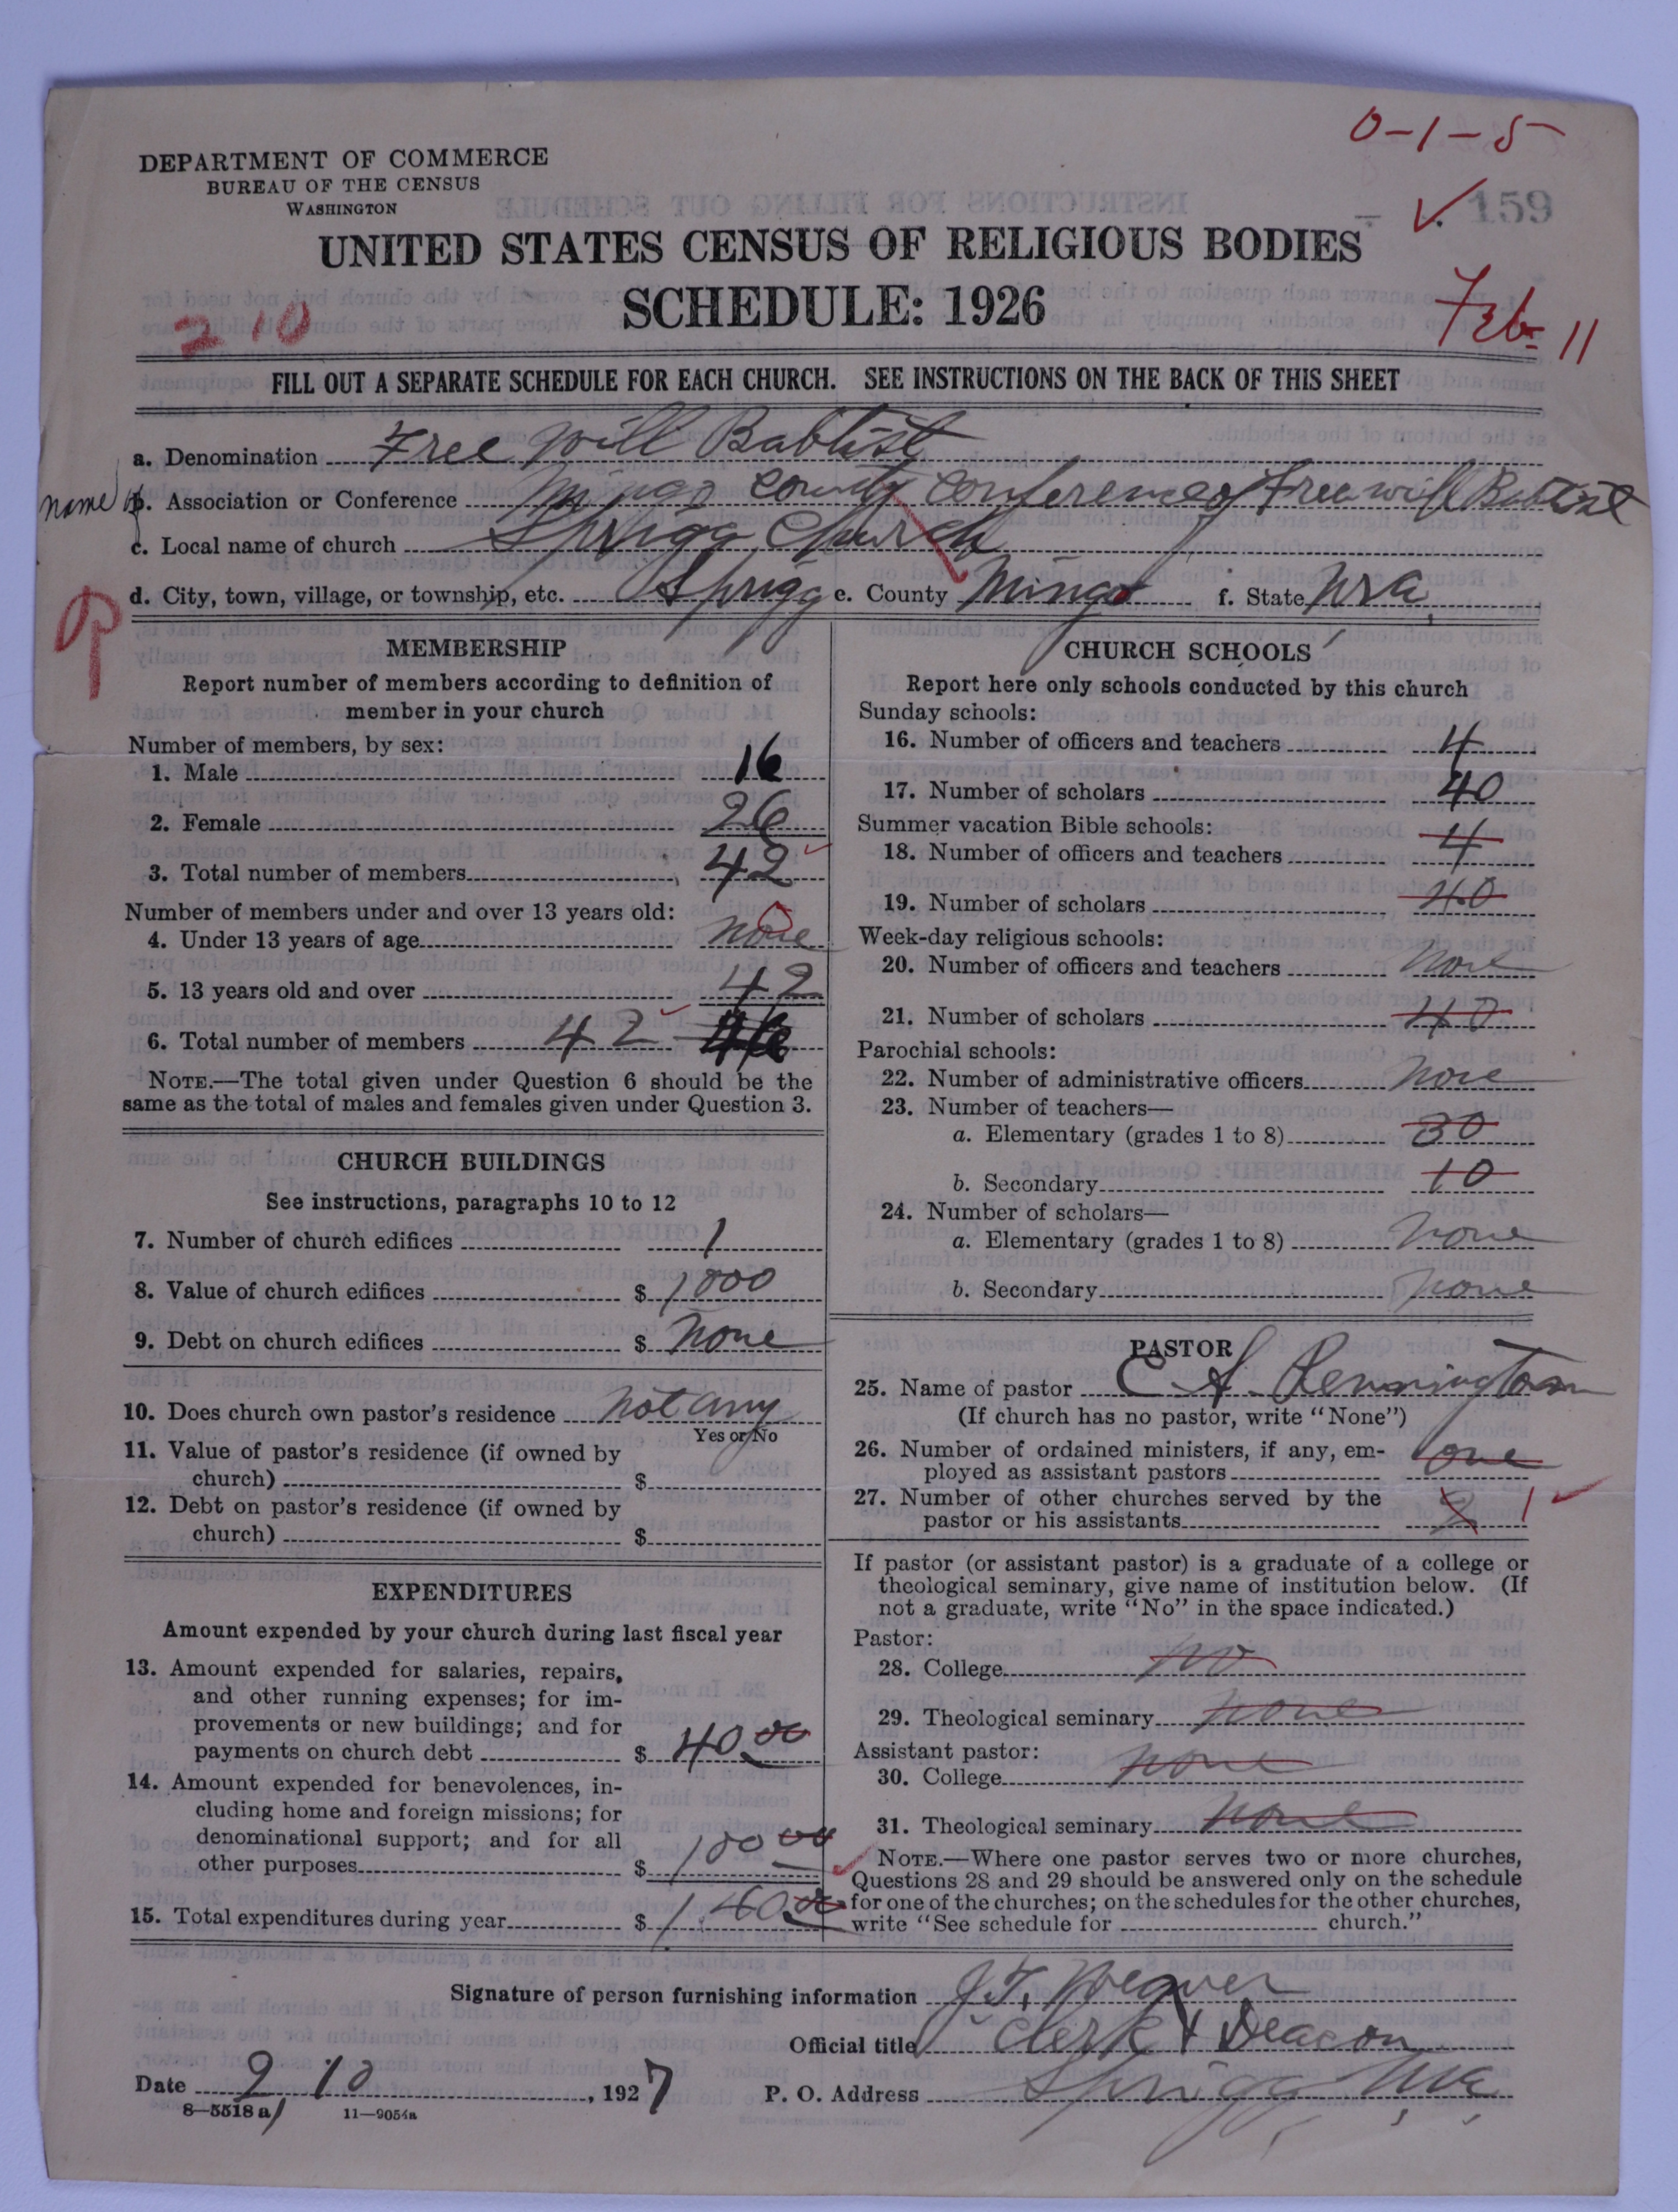 0-1-5
DEPARTMENT OF COMMERCE
BUREAU OF THE CENSUS
WASHINGTON
159
UNITED STATES CENSUS OF RELIGIOUS BODIES
SCHEDULE: 1926
210
Feb 11
FILL OUT A SEPARATE SCHEDULE FOR EACH CHURCH. SEE INSTRUCTIONS ON THE BACK OF THIS SHEET
a. Denomination Free Will Babtist
name of b. Association or Conference Mingo County Conference of Free will Babtist
c. Local name of church Sprigg Church
d. City, town, village, or township, etc. Sprigg e. County Mingo f. State W Va,
MEMBERSHIP
Report number of members according to definition of
member in your church
Number of members, by sex:
1. Male 16
2. Female 26
3. Total number of members 42
Number of members under and over 13 years old:
4. Under 13 years of age none
5. 13 years old and over 42
6. Total number of members 42 46
NOTE.—The total given under Question 6 should be the
same as the total of males and females given under Question 3.
CHURCH BUILDINGS
See instructions, paragraphs 10 to 12
7. Number of church edifices 1
8. Value of church edifices $ 1000
9. Debt on church edifices $ None
10. Does church own pastor's residence not any
Yes or No
11. Value of pastor's residence (if owned by
church) $
12. Debt on pastor's residence (if owned by
church) $
EXPENDITURES
Amount expended by your church during last fiscal year
13. Amount expended for salaries, repairs,
and other running expenses; for im-
provements or new buildings; and for
payments on church debt $ 40 00
14. Amount expended for benevolences, in-
cluding home and foreign missions; for
denominational support; and for all
other purposes $ 100 00
15. Total expenditures during year $ 1.40 00
CHURCH SCHOOLS
Report here only schools conducted by this church
Sunday schools:
16. Number of officers and teachers 4
17. Number of scholars 40
Summer vacation Bible schools:
18. Number of officers and teachers 4
19. Number of scholars 40
Week-day religious schools:
20. Number of officers and teachers none
21. Number of scholars 40
Parochial schools:
22. Number of administrative officers none
23. Number of teachers—
a. Elementary (grades 1 to 8) 30
b. Secondary 10
24. Number of scholars—
a. Elementary (grades 1 to 8) none
b. Secondary none
PASTOR
25. Name of pastor C A. Pennington
(If church has no pastor, write "None")
26. Number of ordained ministers, if any, em-
ployed as assistant pastors one
27. Number of other churches served by the
pastor or his assistants 2 1
If pastor (or assistant pastor) is a graduate of a college or
theological seminary, give name of institution below. (If
not a graduate, write "No" in the space indicated.)
Pastor:
28. College no
29. Theological seminary none
Assistant pastor:
30. College none
31. Theological seminary none
NOTE.—Where one pastor serves two or more churches,
Questions 28 and 29 should be answered only on the schedule
for one of the churches; on the schedules for the other churches,
write "See schedule for church."
Signature of person furnishing information J. T.
Official title Clerk & Deacon
Date 2 10, 1927 P. O. Address Sprigg, W Va,
8—5518 a 11—9054a